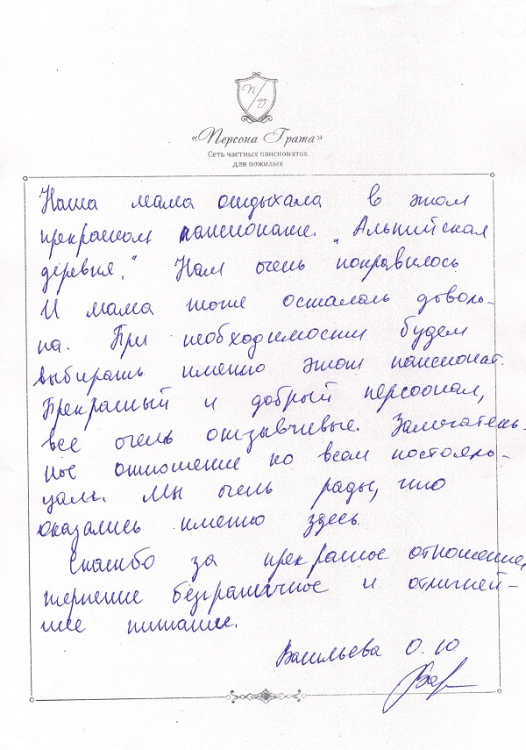 П/Г
«Персона Грата»
Сеть частных пансионатов
для пожилых
Наша мама отдыхала в этом
прекрасном пансионате „Альпийская
деревня." Нам очень понравилось
И мама тоже осталась доволь-
на. При необходимости будем
выбирать именно этот пансионат.
Прекрасный и добрый персоонал,
все очень отзывчивые. Замечатель-
ное отношение ко всем постояль-
цам. Мы очень рады, что
оказались именно здесь.
Спасибо за прекрасное отношение,
терпение безграничное и отличней-
шее питание.
Васильева О. Ю